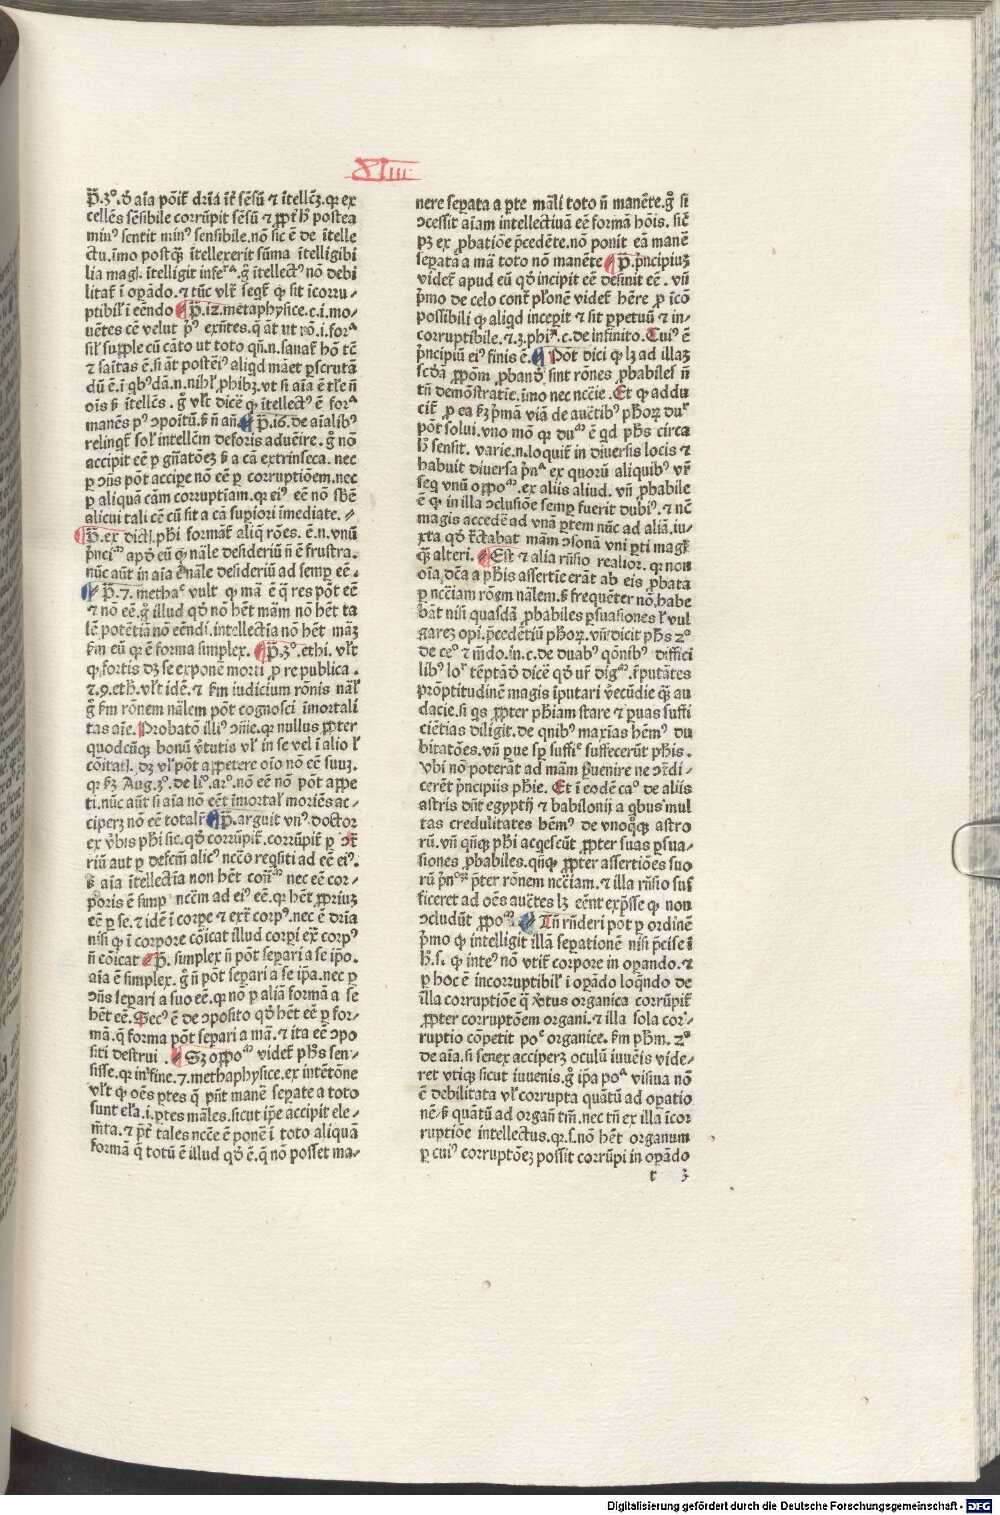 XLIIII
P̄. 3º. ð aīa pōit̄ dr̄iā īt̄ sēsū ⁊ ītellēꝫ. qꝛ ex
cellēs sēsibile corrūpit sēsū ⁊ ꝓpt̄ h̄ postea
minꝰ sentit minꝰ sensibile. nō sic ē de ītelle
ctu. īmo postqꝫ̄ ītellexerit sūma ītelligibi
lia magꝭ. ītelligit inferª. g̊ ītellectꝰ nō debi
litat̄ ī oꝑādo. ⁊ tūc vlt̄ seqt̄ ꝙ sit īcorru⸗
ptibił ī eēndo P̄. 12. metaphysice. c. i. mo⸗
uētes cē velut p̄ꝰ exn̄tes. q̄ āt ut rō. i. forª
siľ suꝑple cū cāto ut toto qn̄. n. sanat̄ hō tē
⁊ saītas ē. si āt postēiꝰ aliqd māet ꝑscrutā
dū ē. ī qbꝰdā. n. nihł ꝓhibꝫ. vt si aīa ē tłe n̄
oīs ß ītellēs. g̊ vlt̄ dicē ꝙ ītellectꝰ ē forª
manēs pꝰ ↄpoitū. ß n̄ an̄. P̄. 16. de aīalibꝰ
relinqt̄ soľ intellēm deforis aduēire. g̊ nō
accipit eē ꝑ gn̄atōeꝫ ß a cā extrinseca. nec
ꝑ ↄn̄s pōt accipe nō eē ꝑ corruptiōem. nec
ꝑ aliquā cām corruptiam. qꝛ eiꝰ eē nō sbē
alicui tali cē cū fit a cā supiori īmediate.
P̄. ex dictꝭ. ph̄i format̄ aliq̄ rōes. ē. n. vnū
p̄nciᵐ apð eū ꝙ nāle desideriū n̄ ē frustra.
nūc aūt in aīa ē nāle desideriū ad semꝑ eē.
P̄. 7. methaᶜ vult ꝙ mā ē q̄ res pōt eē
⁊ nō eē. g̊ illud qð nō hēt mām nō hēt ta
lē potētiā nō eēndi. intellectīa nō hēt māꝫ
ẜm eū qꝛ ē forma simplex. P̄. 3º. ethi. vłt
ꝙ fortis dꝫ se exponē morti ꝓ re publica.
⁊. 9. eth̄. vłt idē. ⁊ ẜm iudicium rōnis nāł
g̊ ẜm rōnem nālem pōt cognosci īmortali
tas aīe. Probatō illiꝰ ↄn̄ie. qꝛ nullus ꝓpter
quodcūqꝫ bonū v̄tutis vł in se vel ī alio ł
cōitatꝭ. dꝫ vł pōt appetere oīo nō eē suuꝫ.
qꝛ ẜꝫ Aug. 3º. de liº. arº. nō eē nō pōt appe
ti. nūc aūt si aīa nō eēt īmortał moriēs ac⸗
ciperꝫ nō eē totalr̄ P̄. arguit vnꝰ doctor
ex v̄bis ph̄i sic. qð corrūpit̄. corrūpit̄ ꝑ ↄt̄
riū aut ꝑ defcm̄ alicꝰ nccō reqsiti ad eē eiꝰ.
ß aīa ītellectīa non hēt cōīᵐ nec eē cor⸗
poris ē simꝑ nccm̄ ad eiꝰ eē. qꝛ hēt ꝓpriuꝫ
eē ꝑ se. ⁊ idē ī corꝑe ⁊ ext̄ corpꝰ. nec ē dr̄ia
nisi ꝙ ī corpore cōicat illud corꝑi ext̄ corpꝰ
n̄ cōicat P̄. simplex n̄ pōt separi a se ip̄o.
aīa ē simplex. g̊ n̄ pōt separi a se ip̄a. nec ꝑ
ↄn̄s separi a suo eē. qꝛ no ꝑ aliā formā a se
hēt eē. Secꝰ ē de ↄposito qð hēt eē ꝑ for⸗
mā. q̄ forma pōt separi a mā. ⁊ ita eē ↄpo
siti destrui. Sꝫ oppoᵐ videt̄ ph̄s sen⸗
sisse. qꝛ in fine. 7. methaphysice. ex intētōne
vłt ꝙ oēs ꝑtes q̄ pn̄t manē seꝑate a toto
sunt elꝰa. i. ꝑtes māles. sicut ip̄e accipit ele⸗
m̄ta. ⁊ p̄t̄ tales nccē ē ponē ī toto aliquā
formā q̄ totū ē illud qð ē. q̄ nō posset ma⸗
nere seꝑata a ꝑte māli toto n̄ manēte. g̊ si
ↄcessit aīam intellectiuā eē formā hōis. sic̄
pꝫ ex ꝓbatiōe p̄cedēte. nō ponit eā manē
seꝑatā a mā toto nō manēte P̄. p̄ncipiuꝫ
videt̄ apud eū qð incipit eē desinit eē. vn̄
p̄mo de celo cont̄ płonē videt̄ hēre ꝓ īcō
possibili ꝙ aliqd inceꝑit ⁊ sit ꝑpetuū ⁊ in⸗
corruptibile. ⁊. 3. phiᶜ. c. de infinito. Cuiꝰ ē
p̄ncipiū eiꝰ finis ē. Pōt dici ꝙ lꝫ ad illaꝫ
scðā ꝓpōm ꝓbanð sint rōnes ꝓbabiles n̄
tn̄ demōstratīe. īmo nec nccīe. Et ꝙ addu
cit̄ ꝓ ea ẜꝫ p̄mā viā de auc̄tibꝰ ph̄oꝝ duˣ
pōt solui. vno mō qꝛ duᵐ ē qd ph̄s circa
h̄ sensit. varie. n. loquit̄ in diuersis locis ⁊
habuit diuersa p̄nª ex quorū aliquibꝰ vr̄
seq vnū oppoᵐ. ex aliis aliud. vn̄ ꝓbabile
ē ꝙ in illa ↄclusiōe semꝑ fuerit dubiꝰ. ⁊ nē
magis accedē ad vnā ꝑtem nūc ad aliā. iu⸗
xta qð t̄ctabat mām ↄsonā vni ꝑti magꝭ
qꝫ̄ alteri. Est ⁊ alia rn̄sio realior. qꝛ non
oīa dc̄a a ph̄is assertīe erāt ab eis ꝓbata
ꝑ nccīam rōem nālem. ß frequēter nō habe
bāt nisi quasdā ꝓbabiles ꝑsuasiones ł vul
gareꝫ opi. p̄cedētiū ph̄oꝝ. vn̄ dicit ph̄s 2º
de ceº ⁊ m̄do. in. c. de duabꝰ qōnibꝰ diffici
libꝰ loˣ tēptādº dicē qð vr̄ digᵐ. r̄putātes
prōptitudinē magis īputari v̄ecūdie qꝫ̄ au
dacie. si qs ꝓpter ph̄iam stare ⁊ ꝑuas suffi
ciētias diligit. de qnibꝰ maxīas hēmꝰ du
bitatōes. vn̄ ꝑue sꝑ sufficᵉ suffecerūt ph̄is.
vbi nō poterāt ad mām ꝑuenire ne ↄr̄di⸗
cerēt p̄ncipiis ph̄ie. Et ī eodē caº de aliis
astris dn̄t egyptij ⁊ babilonij a qbus mul
tas credulitates hēmꝰ de vnoqꝫ̄ astro
rū. vn̄ qn̄qꝫ ph̄i acqescūt ꝓpter suas ꝑsua⸗
siones ꝓbabiles. qn̄qꝫ ꝓpter assertiōes suo
rū p̄nᵒꝝ p̄ter rōnem nccīam. ⁊ illa rn̄sio suf
ficeret ad oēs auc̄tes lꝫ eēnt exp̄sse ꝙ non
ↄcludūt ꝓpoᵐ. In̄ rn̄deri pōt ꝑ ordinē
p̄mo ꝙ intelligit illā seꝑationē nisi p̄cise ī
h̄. s. ꝙ inteꝰ nō vtit̄ corpore in oꝑando. ⁊
ꝑ hoc ē incorruptibił ī oꝑādo loqndo de
illa corruptiōe q̄ v̄tus organica corrūpit̄
ꝓpter corruptōem organi. ⁊ illa sola corˣ⸗
ruptio cōpetit poᵉ organice. ẜm ph̄m. 2º
de aīa. si senex acciperꝫ oculū iuuēis vide⸗
ret vtiqꝫ sicut iuuenis. g̊ ip̄a poª visiua nō
ē debilitata vł corrupta quātū ad oꝑatio
nē. ß quātū ad organ̄ tm̄. nec tn̄ ex illa īcor
ruptiōe intellectus. qꝛ. s. nō hēt organum
ꝑ cuiꝰ corruptōeꝫ possit corrūpi in oꝑādo
t 3
Digitalisierung gefördert durch die Deutsche Forschungsgemeinschaft - DFG